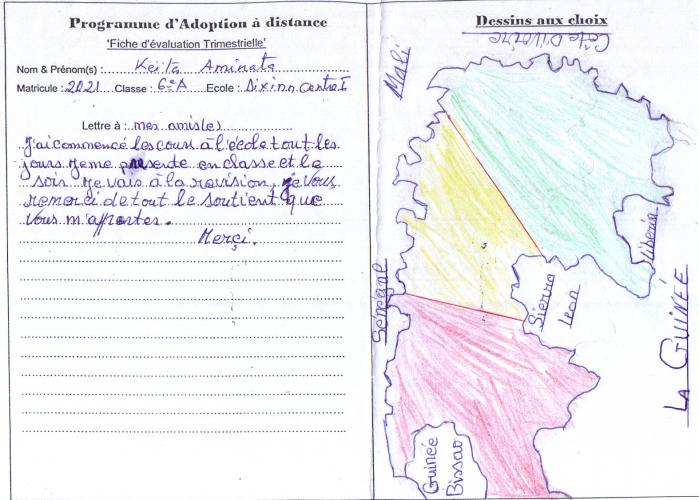 Programme d'Adoption à distance
'Fiche d'évaluation Trimestrielle'
Nom & Prénom(s) : Keita Aminata
Matricule : 2021 Classe : 6eA Ecole : Dixinn Centre I
Lettre à : mes amis(e)
J'ai commencé les cours à l'école tout les
jours je me présente en classe et le
soir je vais à la revision, je vous
remerci de tout le soutient que
Vous m'apportes.
Merci.
Dessins aux choix
Côte D'Ivoire
Mali
liberia
Sénégal
Sierra
leon
LA GUINÉE
Guinée
Bissao